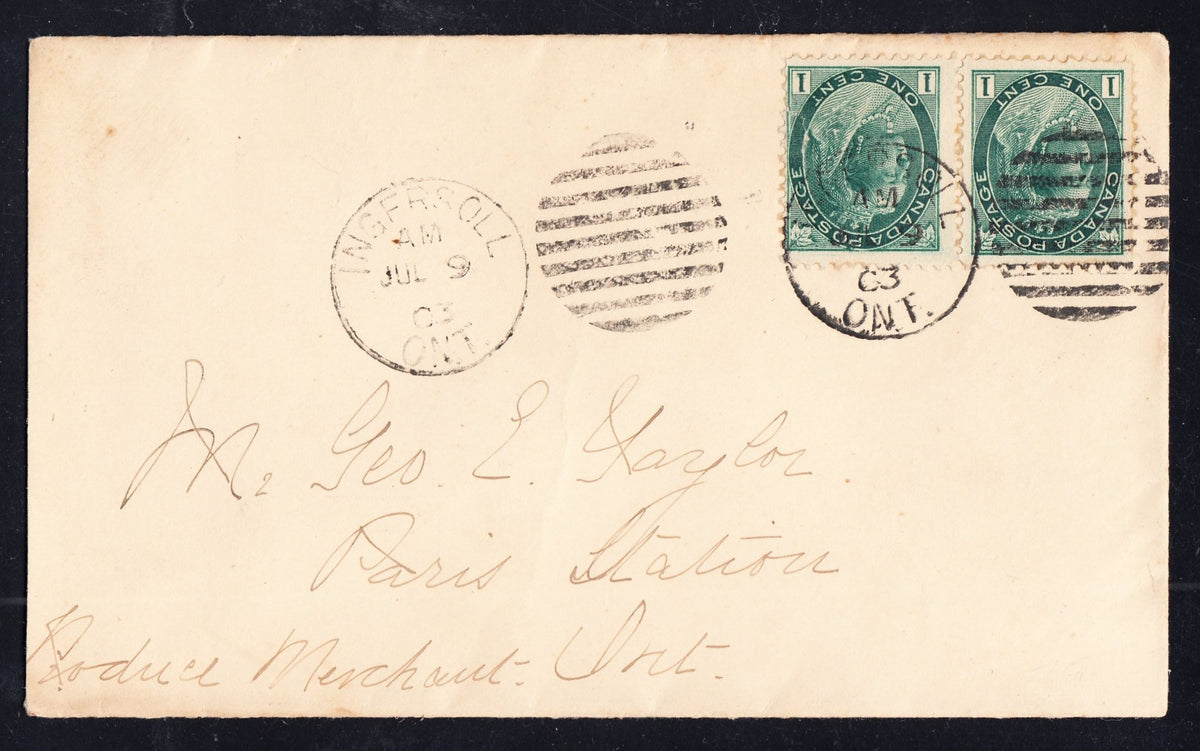 1 ONE CENT 1
CANADA POSTAGE
1 ONE CENT 1
CANADA POSTAGE
INGERSOLL
AM
JUL 9
03
ONT.
AM
9
03
ONT.
Mr Geo. E. Taylor.
Paris Station
Produce Merchant. Ont.